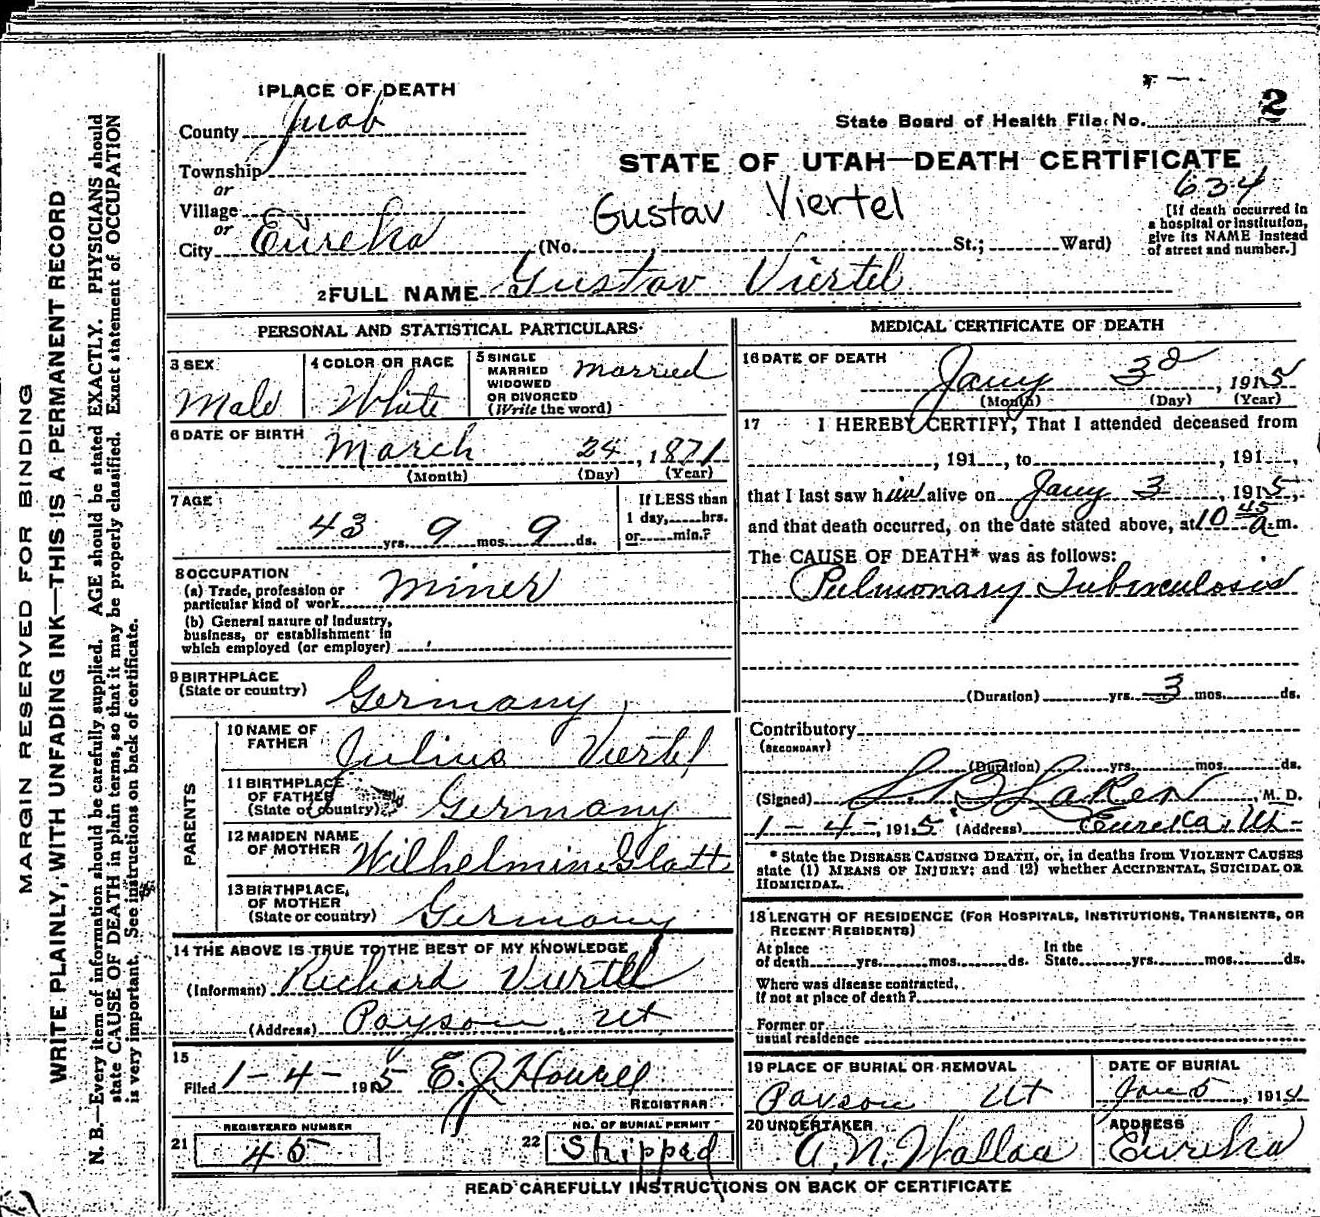 MARGIN RESERVED FOR BINDING
WRITE PLAINLY, WITH UNFADING INK—THIS IS A PERMANENT RECORD
N. B.—Every item of information should be carefully supplied. AGE should be stated EXACTLY. PHYSICIANS should
state CAUSE OF DEATH in plain terms, so that it may be properly classified. Exact statement of OCCUPATION
is very important. See instructions on back of certificate.
1 PLACE OF DEATH
County Juab
Township
or
Village
or
City Eureka (No. St.; Ward)
State Board of Health File No. 2
STATE OF UTAH—DEATH CERTIFICATE
634
Gustav Viertel
[If death occurred in
a hospital or institution,
give its NAME instead
of street and number.]
2 FULL NAME Gustav Viertel
PERSONAL AND STATISTICAL PARTICULARS
3 SEX Male
4 COLOR OR RACE White
5 SINGLE
MARRIED
WIDOWED
OR DIVORCED
(Write the word) married
6 DATE OF BIRTH
March 24, 1871
(Month) (Day) (Year)
7 AGE
43 yrs. 9 mos. 9 ds.
If LESS than
1 day, hrs.
or min.?
8 OCCUPATION
(a) Trade, profession or
particular kind of work Miner
(b) General nature of Industry,
business, or establishment in
which employed (or employer)
9 BIRTHPLACE
(State or country) Germany
PARENTS
10 NAME OF
FATHER Julius Viertel
11 BIRTHPLACE
OF FATHER
(State or country) Germany
12 MAIDEN NAME
OF MOTHER Wilhelmine Glatt
13 BIRTHPLACE
OF MOTHER
(State or country) Germany
14 THE ABOVE IS TRUE TO THE BEST OF MY KNOWLEDGE
(Informant) Richard Viertel
(Address) Payson, Ut
15
Filed 1-4-1915 E. J. Howell
REGISTRAR
21 REGISTERED NUMBER
45
22 NO. OF BURIAL PERMIT
Shipped
MEDICAL CERTIFICATE OF DEATH
16 DATE OF DEATH
Jany 3d, 1915
(Month) (Day) (Year)
17 I HEREBY CERTIFY, That I attended deceased from
, 191 , to , 191 ,
that I last saw him alive on Jany 3, 1915,
and that death occurred, on the date stated above, at 10 45 a.m.
The CAUSE OF DEATH* was as follows:
Pulmonary Tuberculosis
(Duration) yrs. 3 mos. ds.
Contributory
(SECONDARY)
(Duration) yrs. mos. ds.
(Signed) , M. D.
1-4-, 1915 (Address) Eureka, Ut-
* State the DISEASE CAUSING DEATH, or, in deaths from VIOLENT CAUSES
state (1) MEANS OF INJURY; and (2) whether ACCIDENTAL, SUICIDAL OR
HOMICIDAL.
18 LENGTH OF RESIDENCE (FOR HOSPITALS, INSTITUTIONS, TRANSIENTS, OR
RECENT RESIDENTS)
At place
of death yrs. mos. ds.
In the
State yrs. mos. ds.
Where was disease contracted,
if not at place of death?
Former or
usual residence
19 PLACE OF BURIAL OR REMOVAL
Payson Ut
DATE OF BURIAL
Jan 5, 1914
20 UNDERTAKER
A. N. Wallace
ADDRESS
Eureka
READ CAREFULLY INSTRUCTIONS ON BACK OF CERTIFICATE